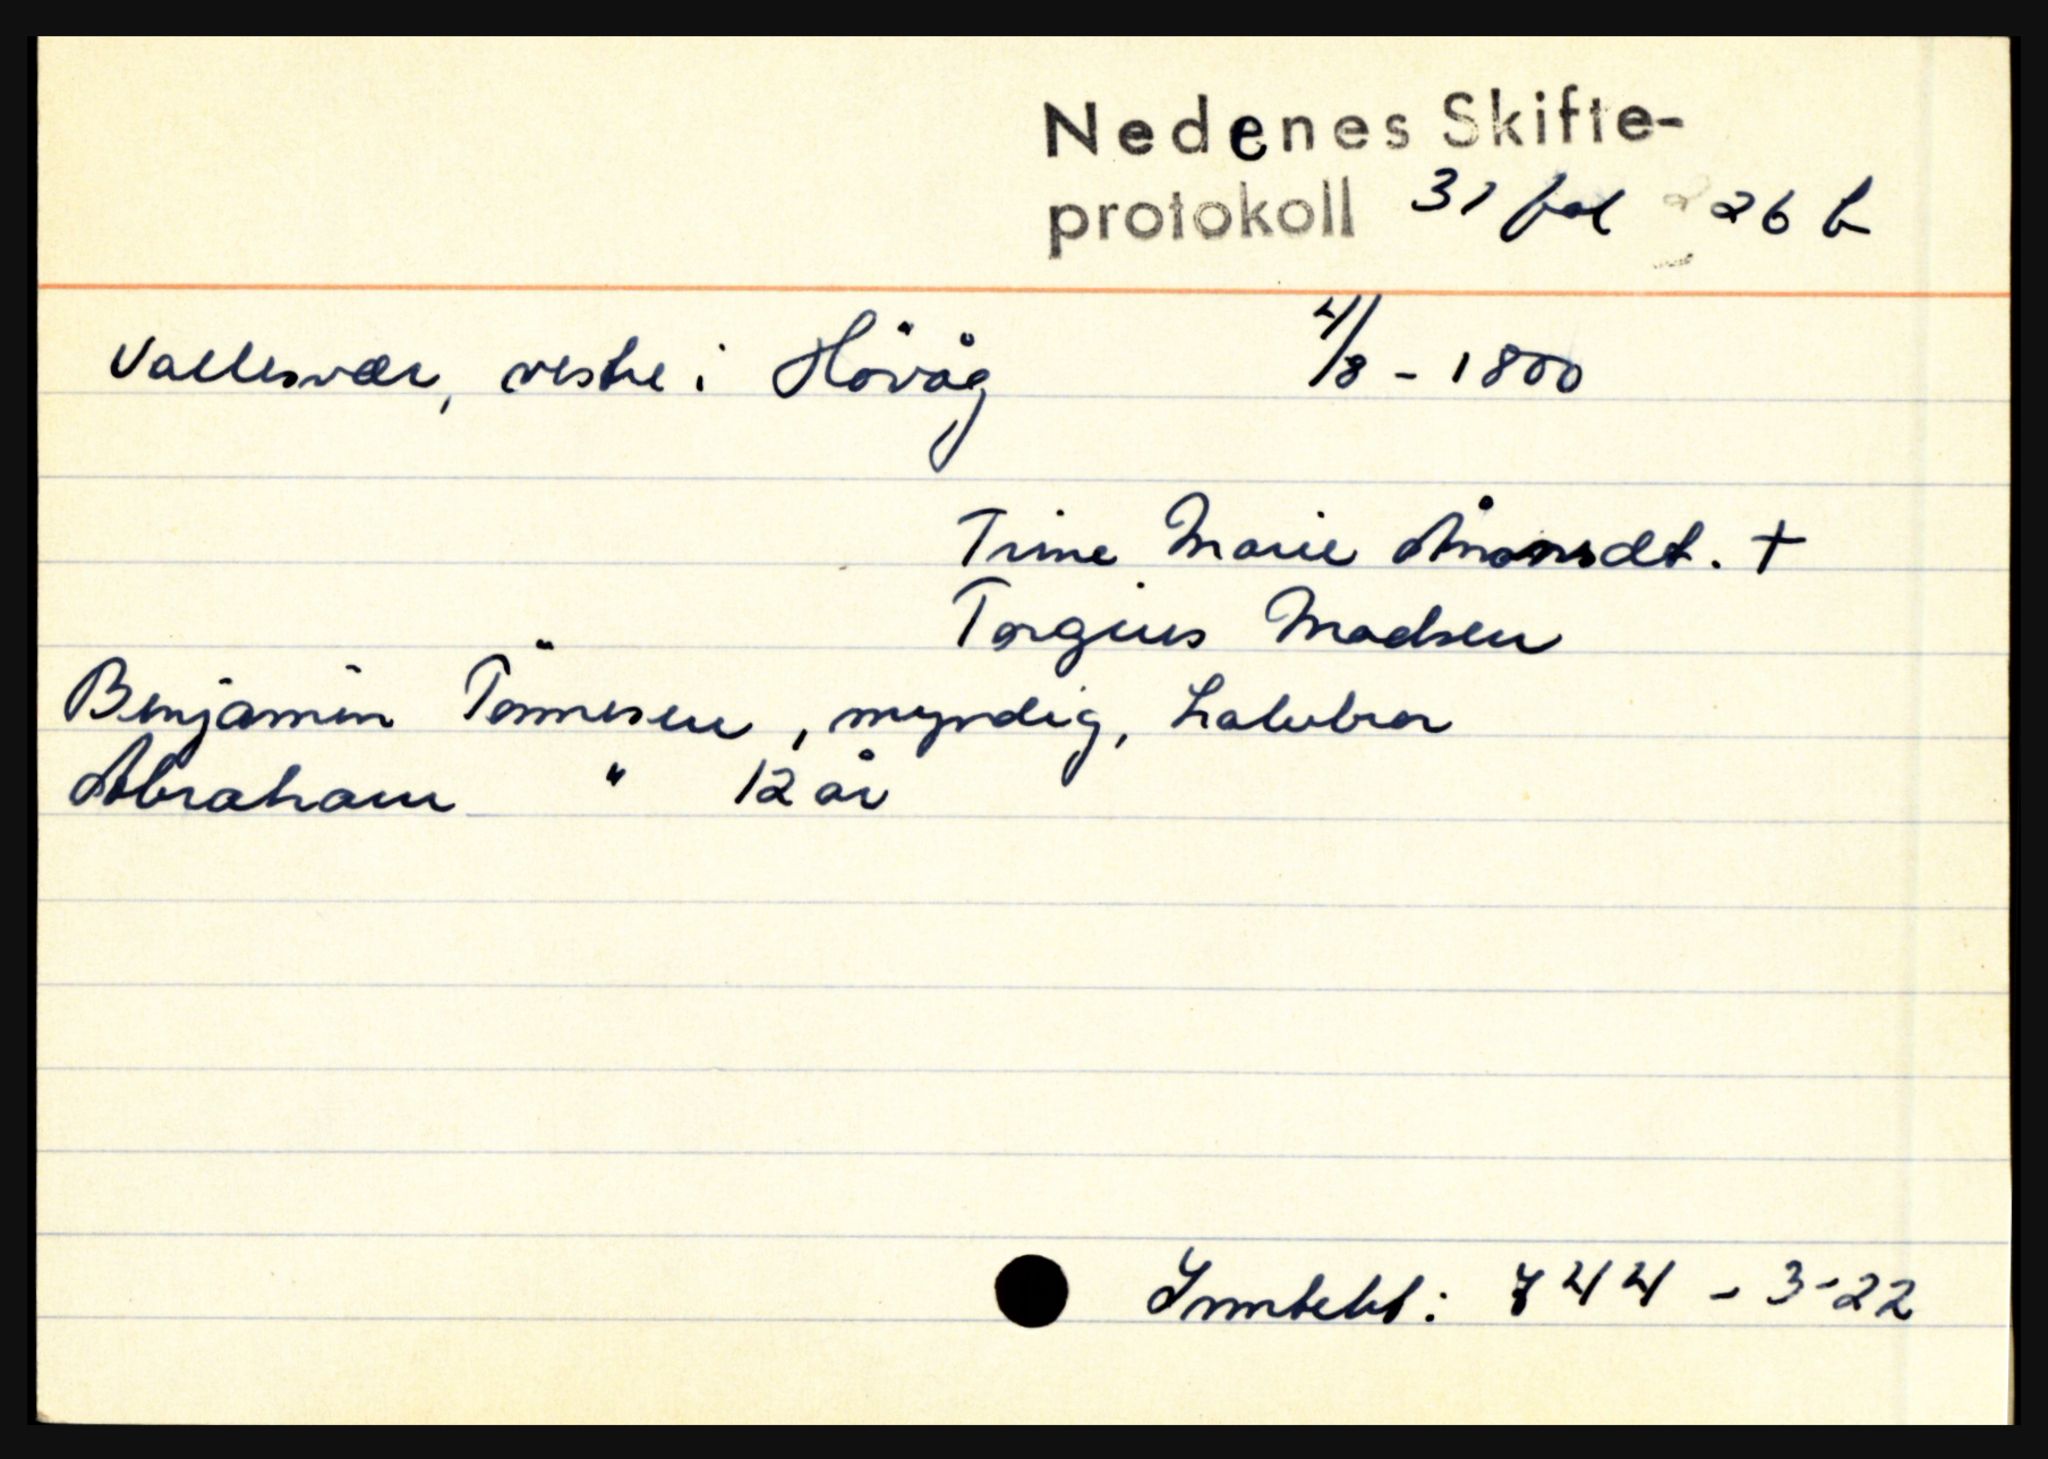 Nedenes Skifte-
protokoll 31 fol 226 b
Vallesvær, vestre i Hövåg 4/8 - 1800
Trine Marie Åmonsdt. +
Torgius Madsen
Benjamin Tönnesen, myndig, halvbror
Abraham " 12 år
Inntekt: 744 - 3 - 22